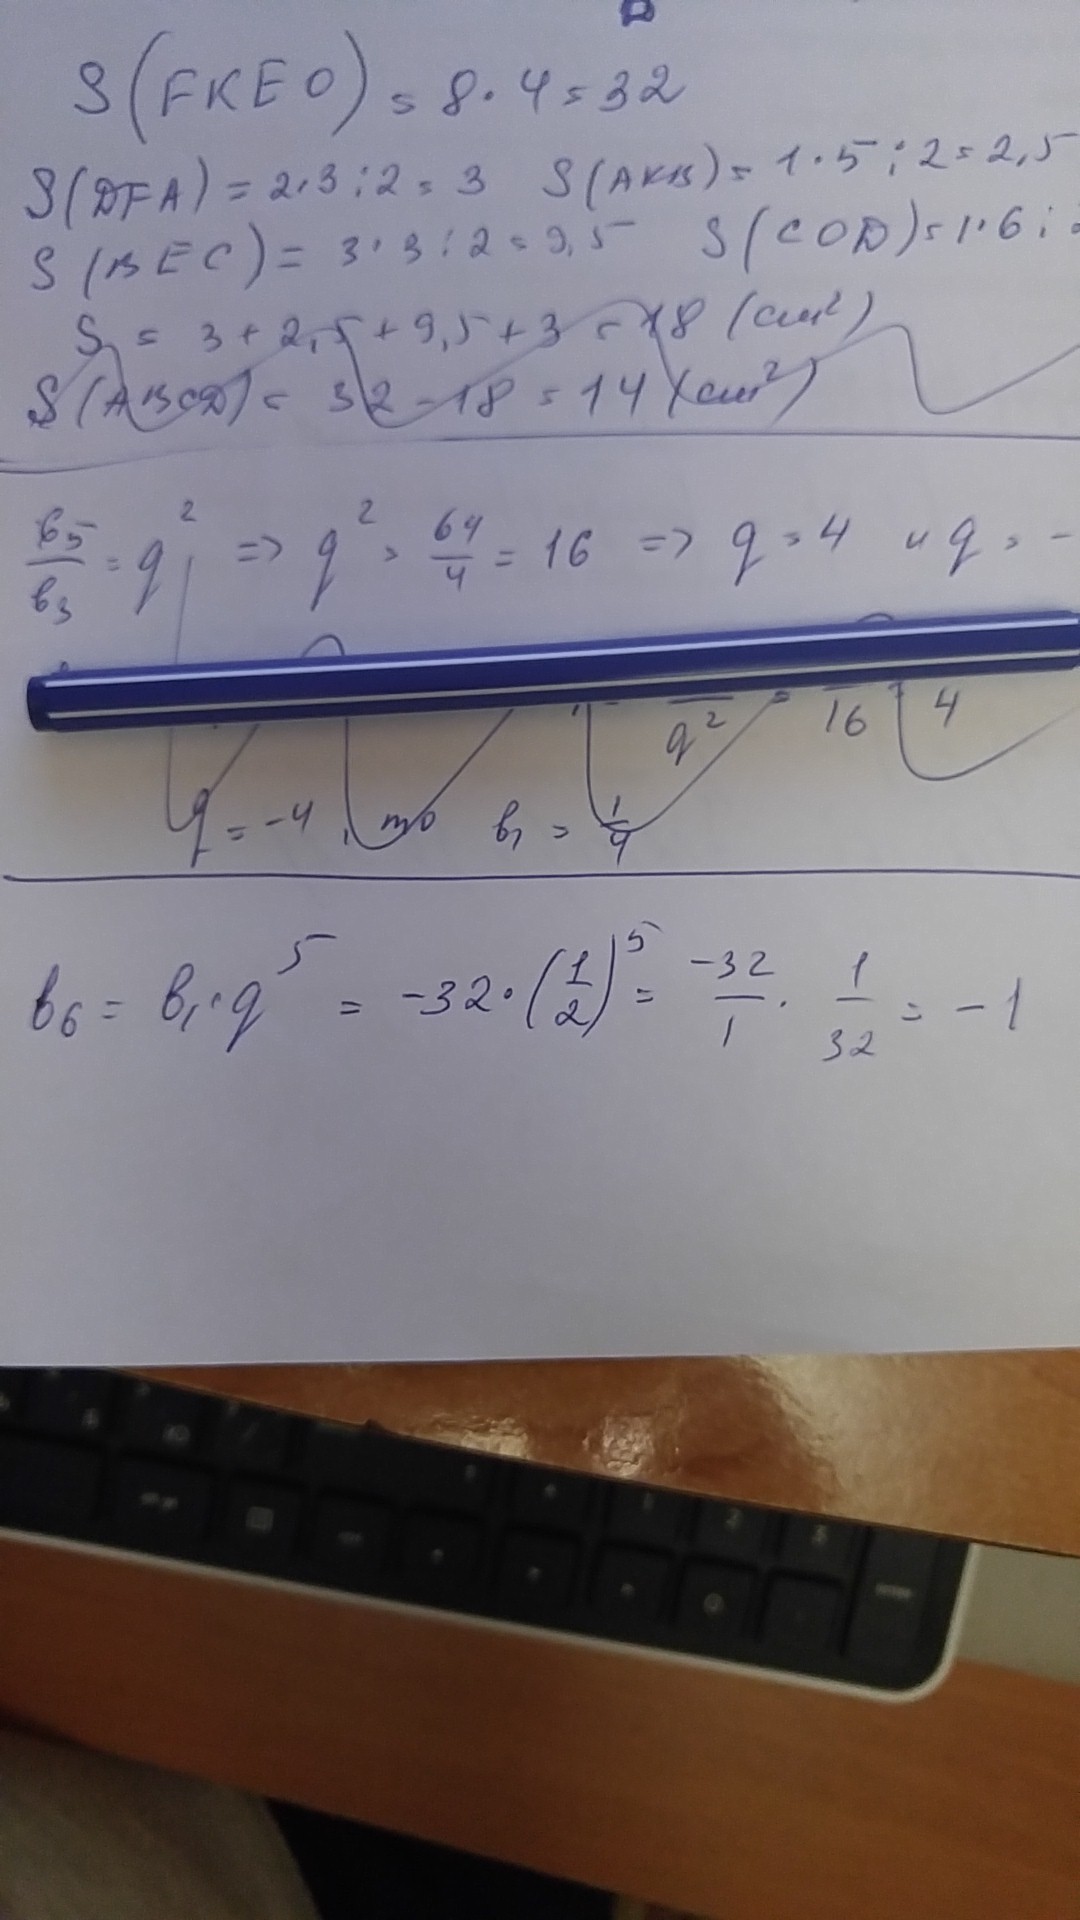 S(FKEO) = 8·4 = 32
S(DFA) = 2·3:2 = 3 S(AKB) = 1·5:2 = 2,5
S(BEC) = 3·3:2 = 9,5 S(COD) = 1·6:2
S = 3 + 2,5 + 9,5 + 3 = 18 (см²)
S(ABCD) = 32 - 18 = 14 (см²)
b₅/b₃ = q² => q² = 64/4 = 16 => q = 4 и q = -
q² = 16 4
q = -4, то b₁ = 1/4
b₆ = b₁·q⁵ = -32·(1/2)⁵ = -32/1 · 1/32 = -1